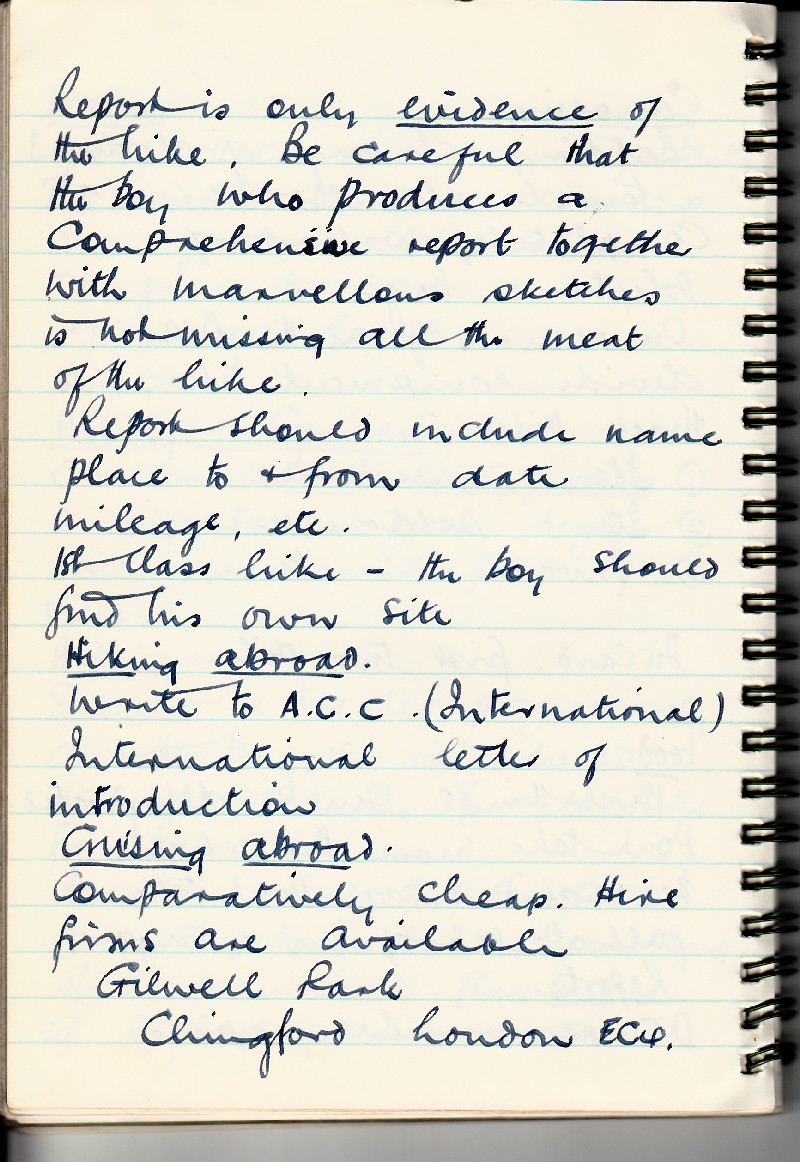 Report is only evidence of
the hike. Be careful that
the boy who produces a
Comprehensive report together
with marvellous sketches
is not missing all the meat
of the hike.
Report should include name
place to & from date
mileage, etc.
1st Class hike - the boy should
find his own site
Hiking abroad.
Write to A.C.C. (International)
International letter of
introduction
Cruising abroad.
Comparatively cheap. Hire
firms are available
Gilwell Park
Chingford London EC4.